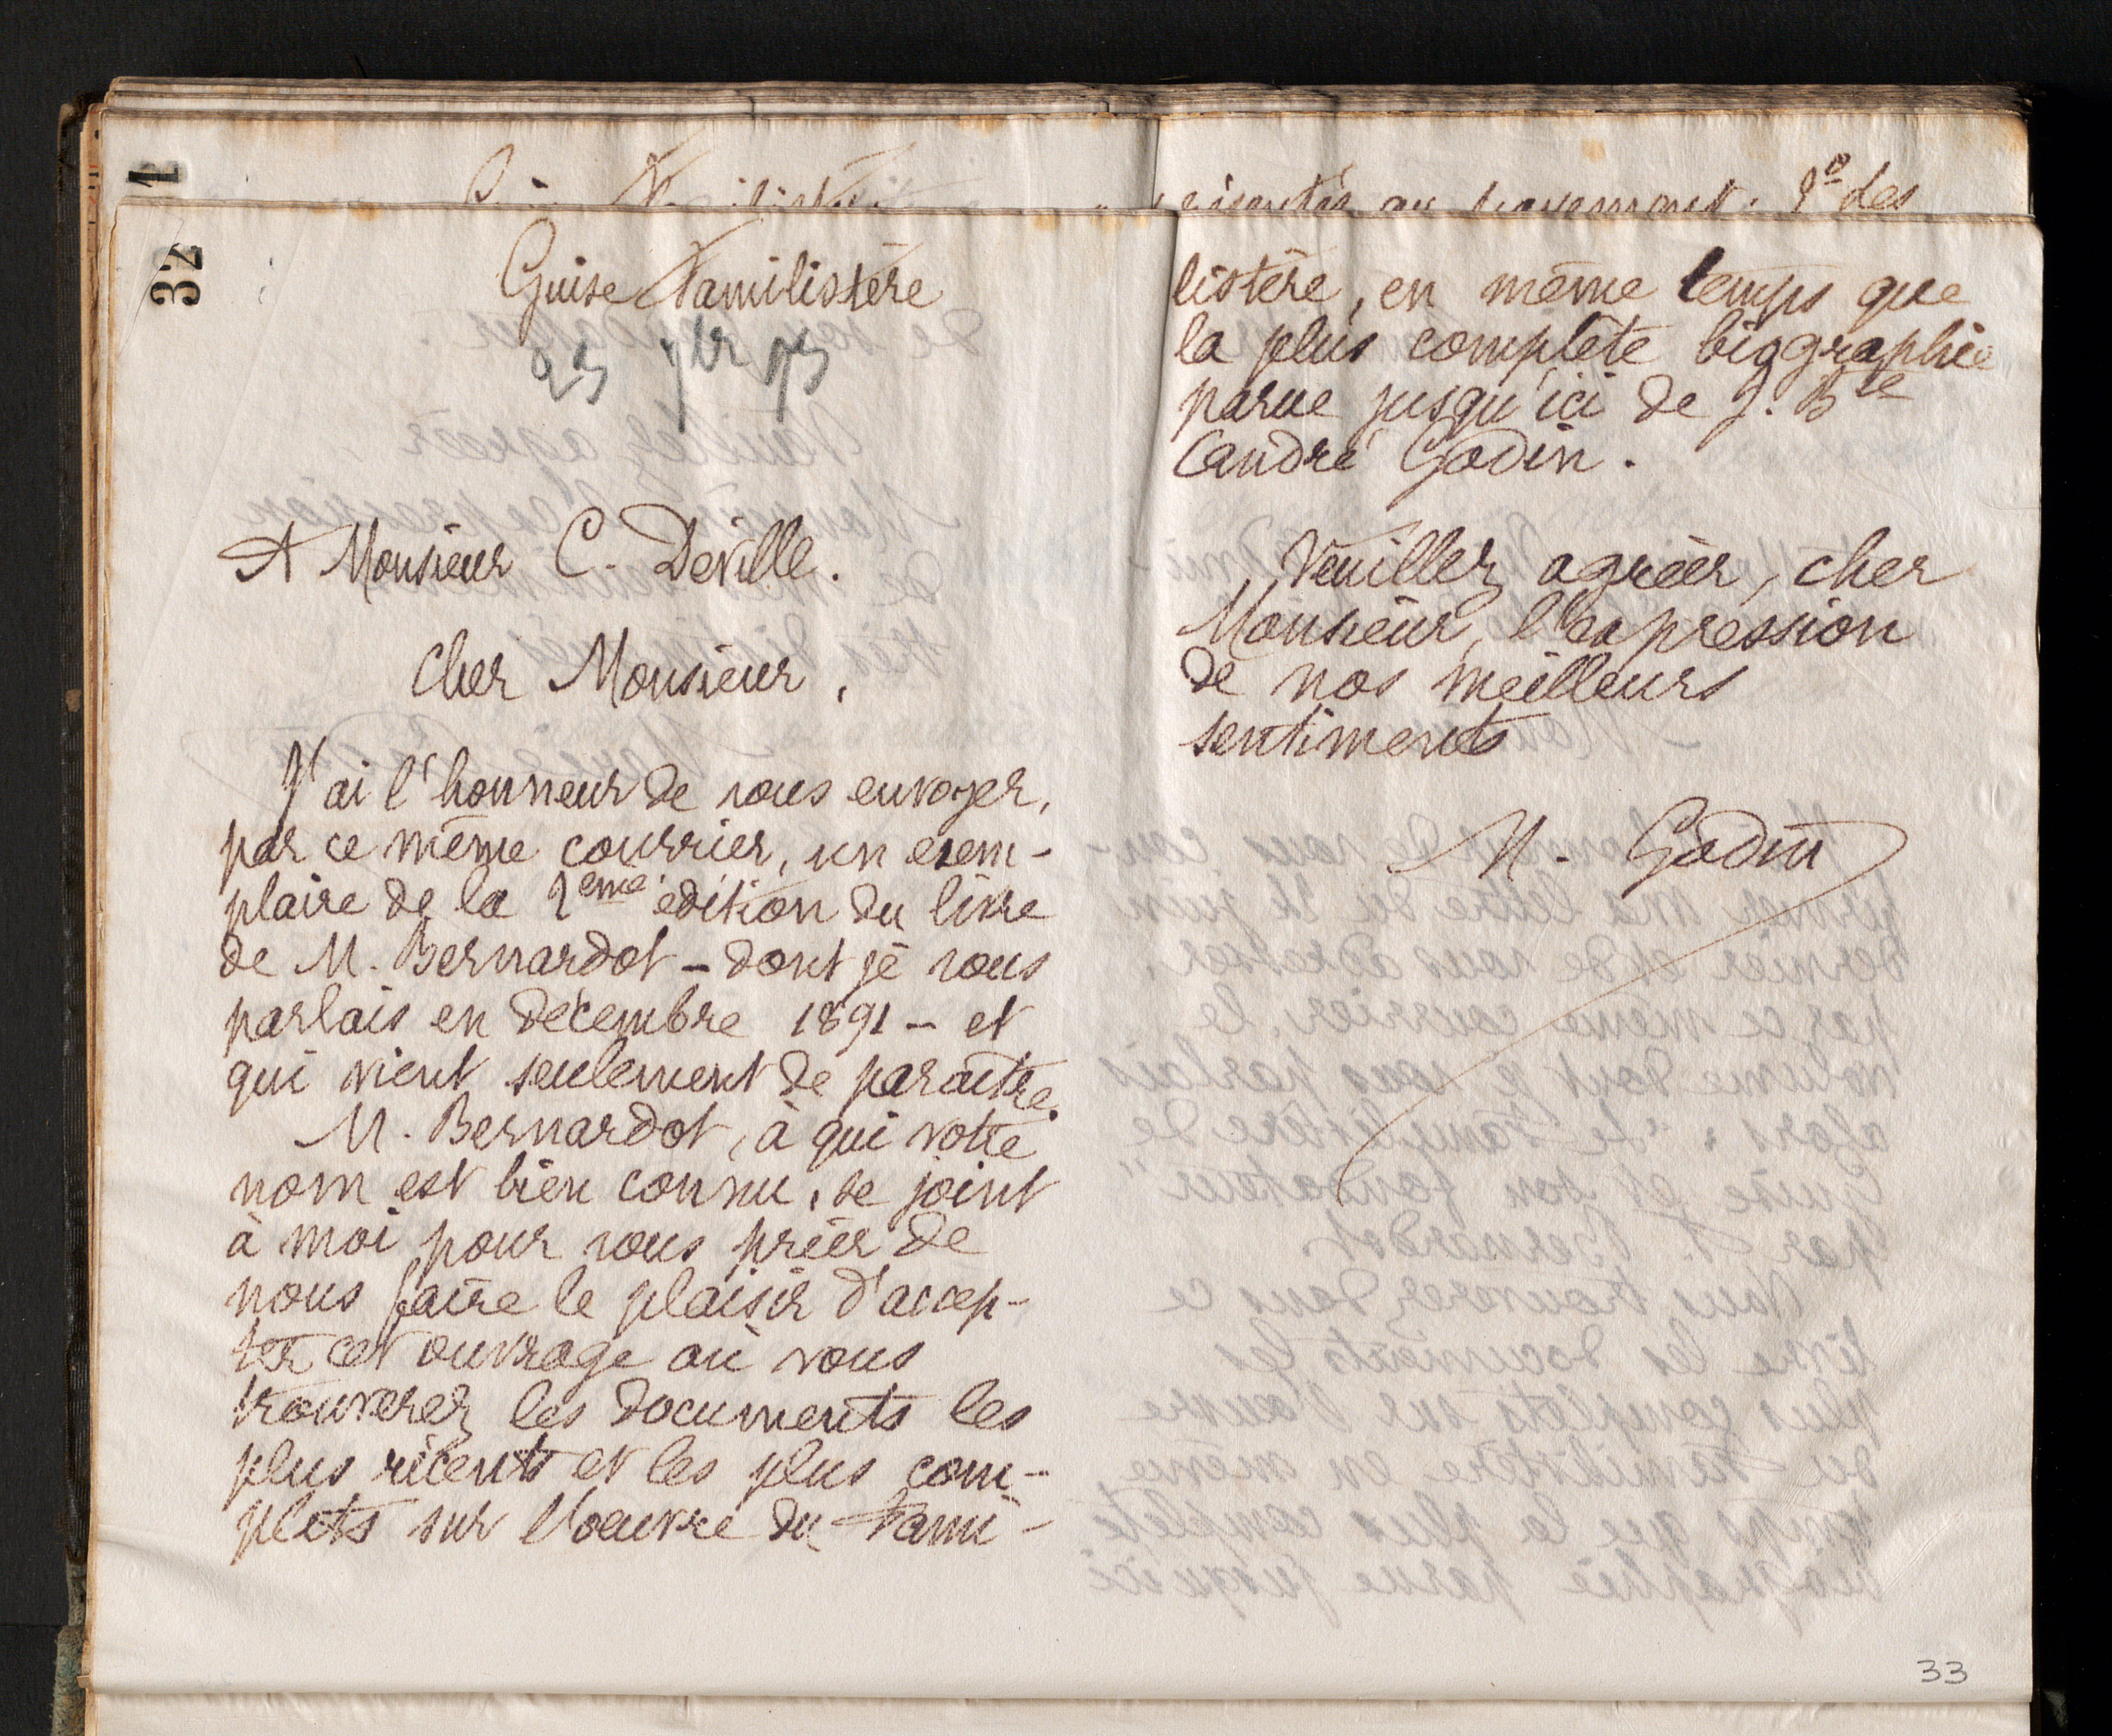 32
Guise Familistère
A Monsieur C. Deville.
Cher Monsieur,
J'ai l'honneur de vous envoyer,
par ce même courrier, un exem-
plaire de la 2eme édition du livre
de M. Bernardot – dont je vous
parlais en décembre 1891 – et
qui vient seulement de paraître.
M. Bernardot, à qui votre
nom est bien connu, se joint
à moi pour vous prier de
nous faire le plaisir d'accep-
ter cet ouvrage où vous
trouverez les documents les
plus récents et les plus com-
plets sur l'oeuvre du Fami-
listère, en même temps que
la plus complète biographie
parue jusqu'ici de J. Bte
André Godin.
Veuillez agréer, cher
Monsieur, l'expression
de nos meilleurs
sentiments
M. Godin
33